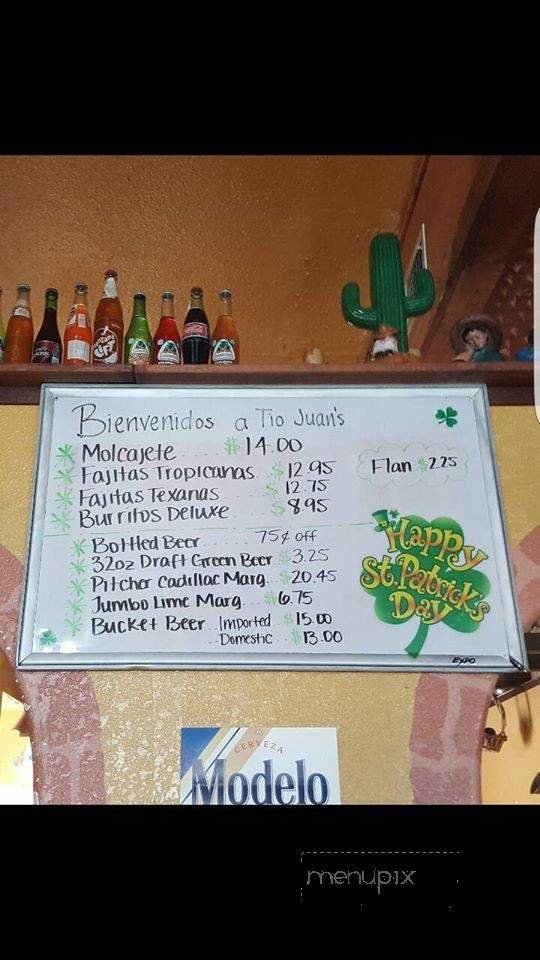 Bienvenidos a Tio Juan's
Molcajete .... $14.00
Fajitas Tropicanas $12.95
Fajitas Texanas $12.75
Burritos Deluxe $8.95
Flan $2.25
Bottled Beer 75¢ off
32oz Draft Green Beer $3.25
Pitcher Cadillac Marg... $20.45
Jumbo Lime Marg. ... $6.75
Bucket Beer .. Imported .. $15.00
.. Domestic .. $13.00
Happy
St. Patrick's
Day
EXPO
CERVEZA
Modelo
menupix